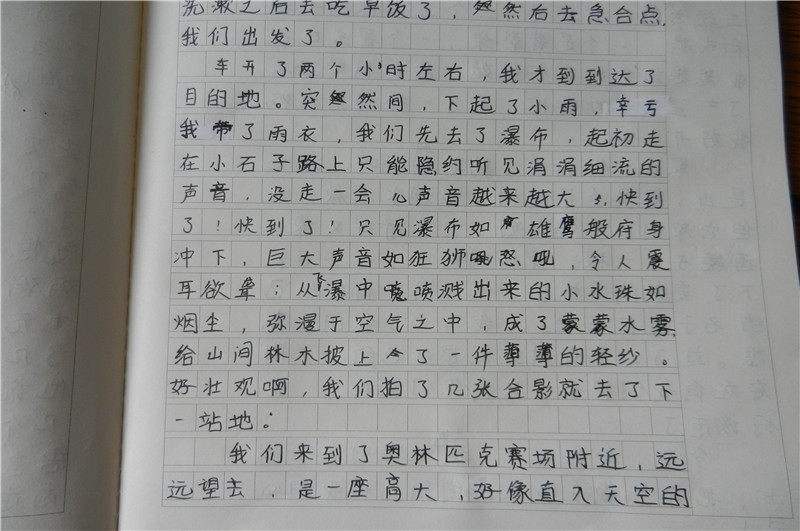 洗漱之后去吃早饭了，然后去急合点，
我们出发了。
车开了两个小时左右，我才到到达了
目的地。突然间，下起了小雨，幸亏
我带了雨衣，我们先去了瀑布，起初走
在小石子路上只能隐约听见涓涓细流的
声音，没走一会儿声音越来越大，快到
了！快到了！只见瀑布如雄鹰般府身
冲下，巨大声音如狂狮怒吼，令人震
耳欲聋；从飞瀑中喷溅出来的小水珠如
烟尘，弥漫于空气之中，成了蒙蒙水雾，
给山间林水披上了一件薄薄的轻纱。
好壮观啊，我们拍了几张合影就去了下
一站地：
我们来到了奥林匹克赛场附近，远
远望去，是一座高大，好像直入天空的